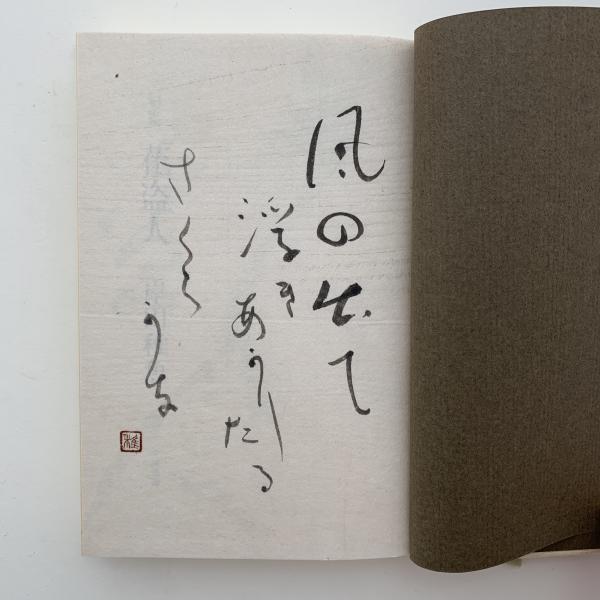 風の出て
浮きあかりたる
さくら
かな